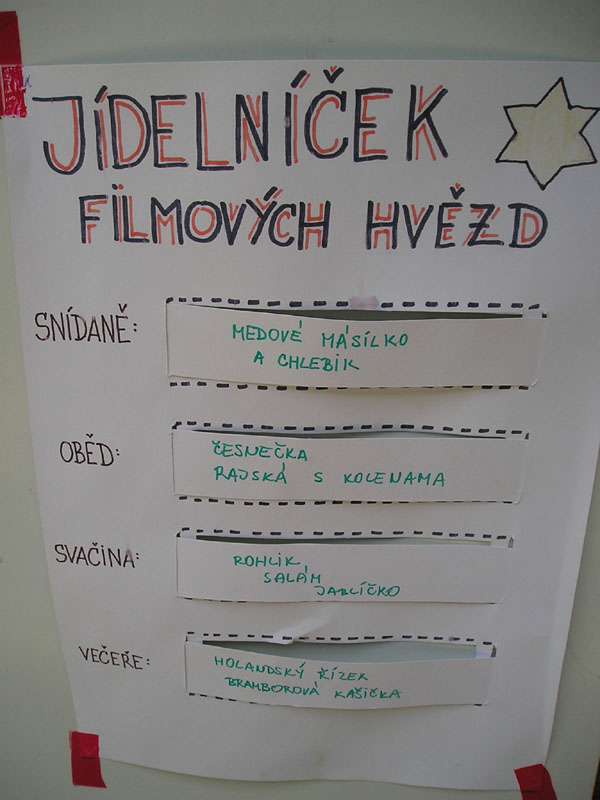 JÍDELNÍČEK
FILMOVÝCH HVĚZD
SNÍDANĚ:
MEDOVÉ MÁSÍLKO
A CHLEBÍK
OBĚD:
ČESNEČKA
RAJSKÁ S KOLENAMA
SVAČINA:
ROHLIK,
SALÁM
JABLÍČKO
VEČEŘE:
HOLANDSKÝ ŘÍZEK
BRAMBOROVÁ KAŠIČKA